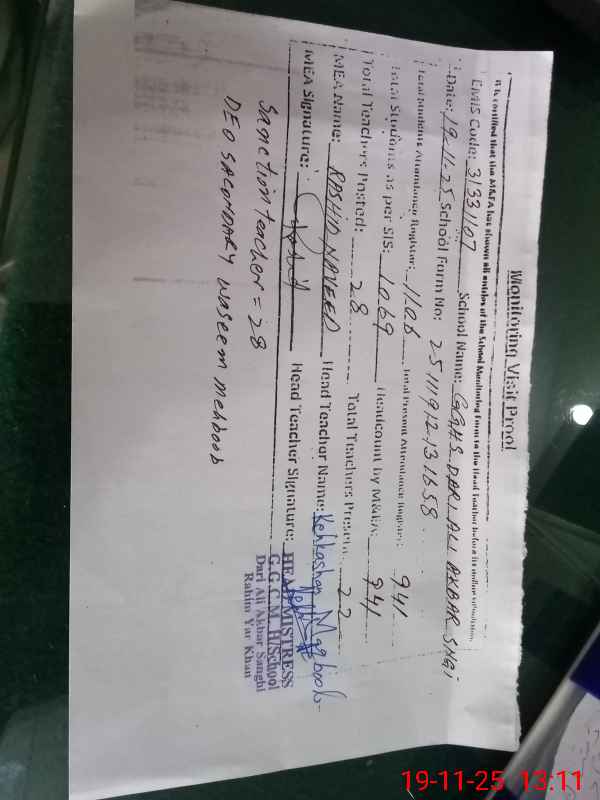 Monitoring Visit Proof
It is certified that the M&EA has shown all entries of the School Monitoring Form to the Head Teacher before its online submission.
EMIS Code: 31331107 School Name: GGHS DARI ALI AKBAR SNGI
Date: 19.11.25 School Form No: 25111912131658
Total Students Attendance Register: 1106 Total Present Attendance Register: 941
Total Students as per SIS: 1069 Headcount by M&EA: 941
Total Teachers Posted: 28 Total Teachers Present: 22
MEA Name: RASHID NAVEED Head Teacher Name: Kehkashan Maqboob
MEA Signature: Head Teacher Signature:
HEADMISTRESS
G.G.C.M. H/School
Dari Ali Akbar Sanghi
Rahim Yar Khan
Sanction teacher = 28
DEO SACONDARY WASEEM mehboob
19-11-25 13:11